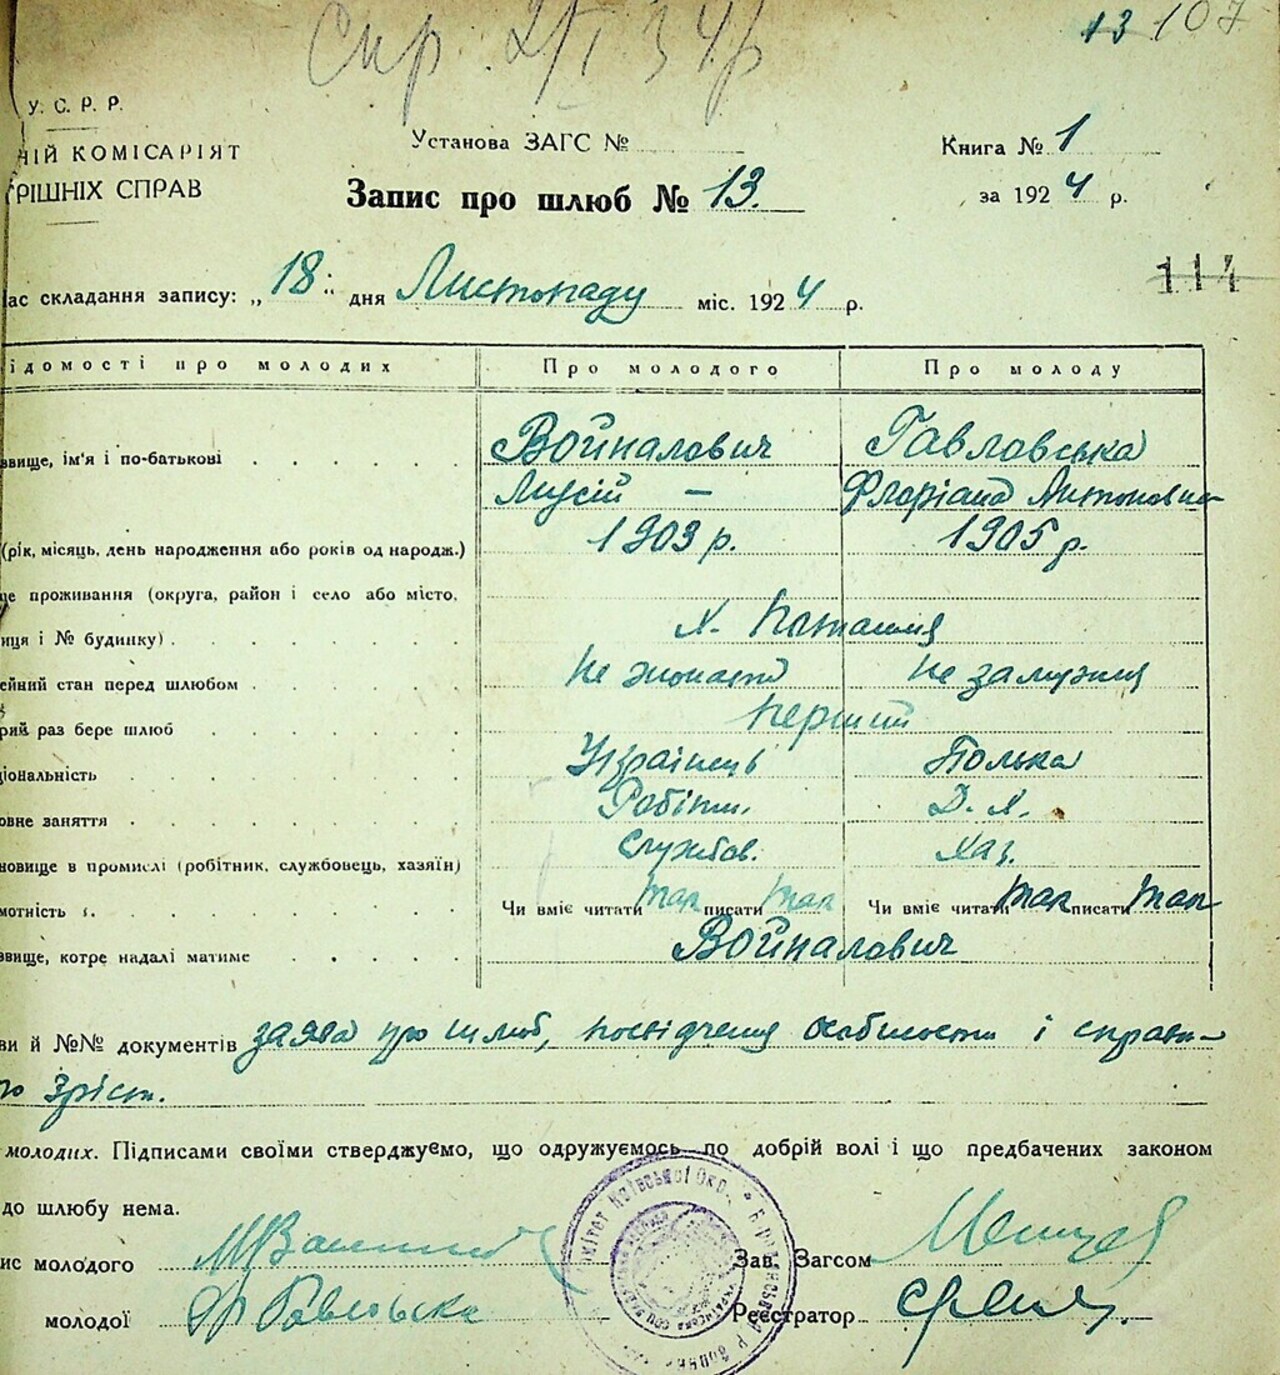 Спр. 2/I 34р
13 107
У. С. Р. Р.
НІЙ КОМІСАРІЯТ
РІШНІХ СПРАВ
Установа ЗАГС №
Книга № 1
Запис про шлюб № 13.
за 1924 р.
114
час складання запису: „18“ дня Листопаду міс. 1924 р.
ідомості про молодих
Про молодого
Про молоду
звище, ім'я і по-батькові
Войналович
Гавловська
Мусій —
Флоріана Антоновна
(рік, місяць, день народження або років од народж.)
1903 р.
1905 р.
це проживання (округа, район і село або місто,
иця і № будинку)
х. Поташня
ейний стан перед шлюбом
Не жонатий
Не замужня
рий раз бере шлюб
Перший
ціональність
Українець
Полька
овне заняття
Робітн.
Д. Х.
новище в промислі (робітник, службовець, хазяїн)
Службов.
Хаз.
мотність
Чи вміє читати так писати так
Чи вміє читати так писати так
звище, котре надалі матиме
Войналович
ви й №№ документів заява про шлюб, посвідчення особистости і справк-
про зріст.
молодих. Підписами своїми стверджуємо, що одружуємось по добрій волі і що предбачених законом
до шлюбу нема.
ис молодого
Зав. Загсом
молодої Фр Гавловська
Реєстратор